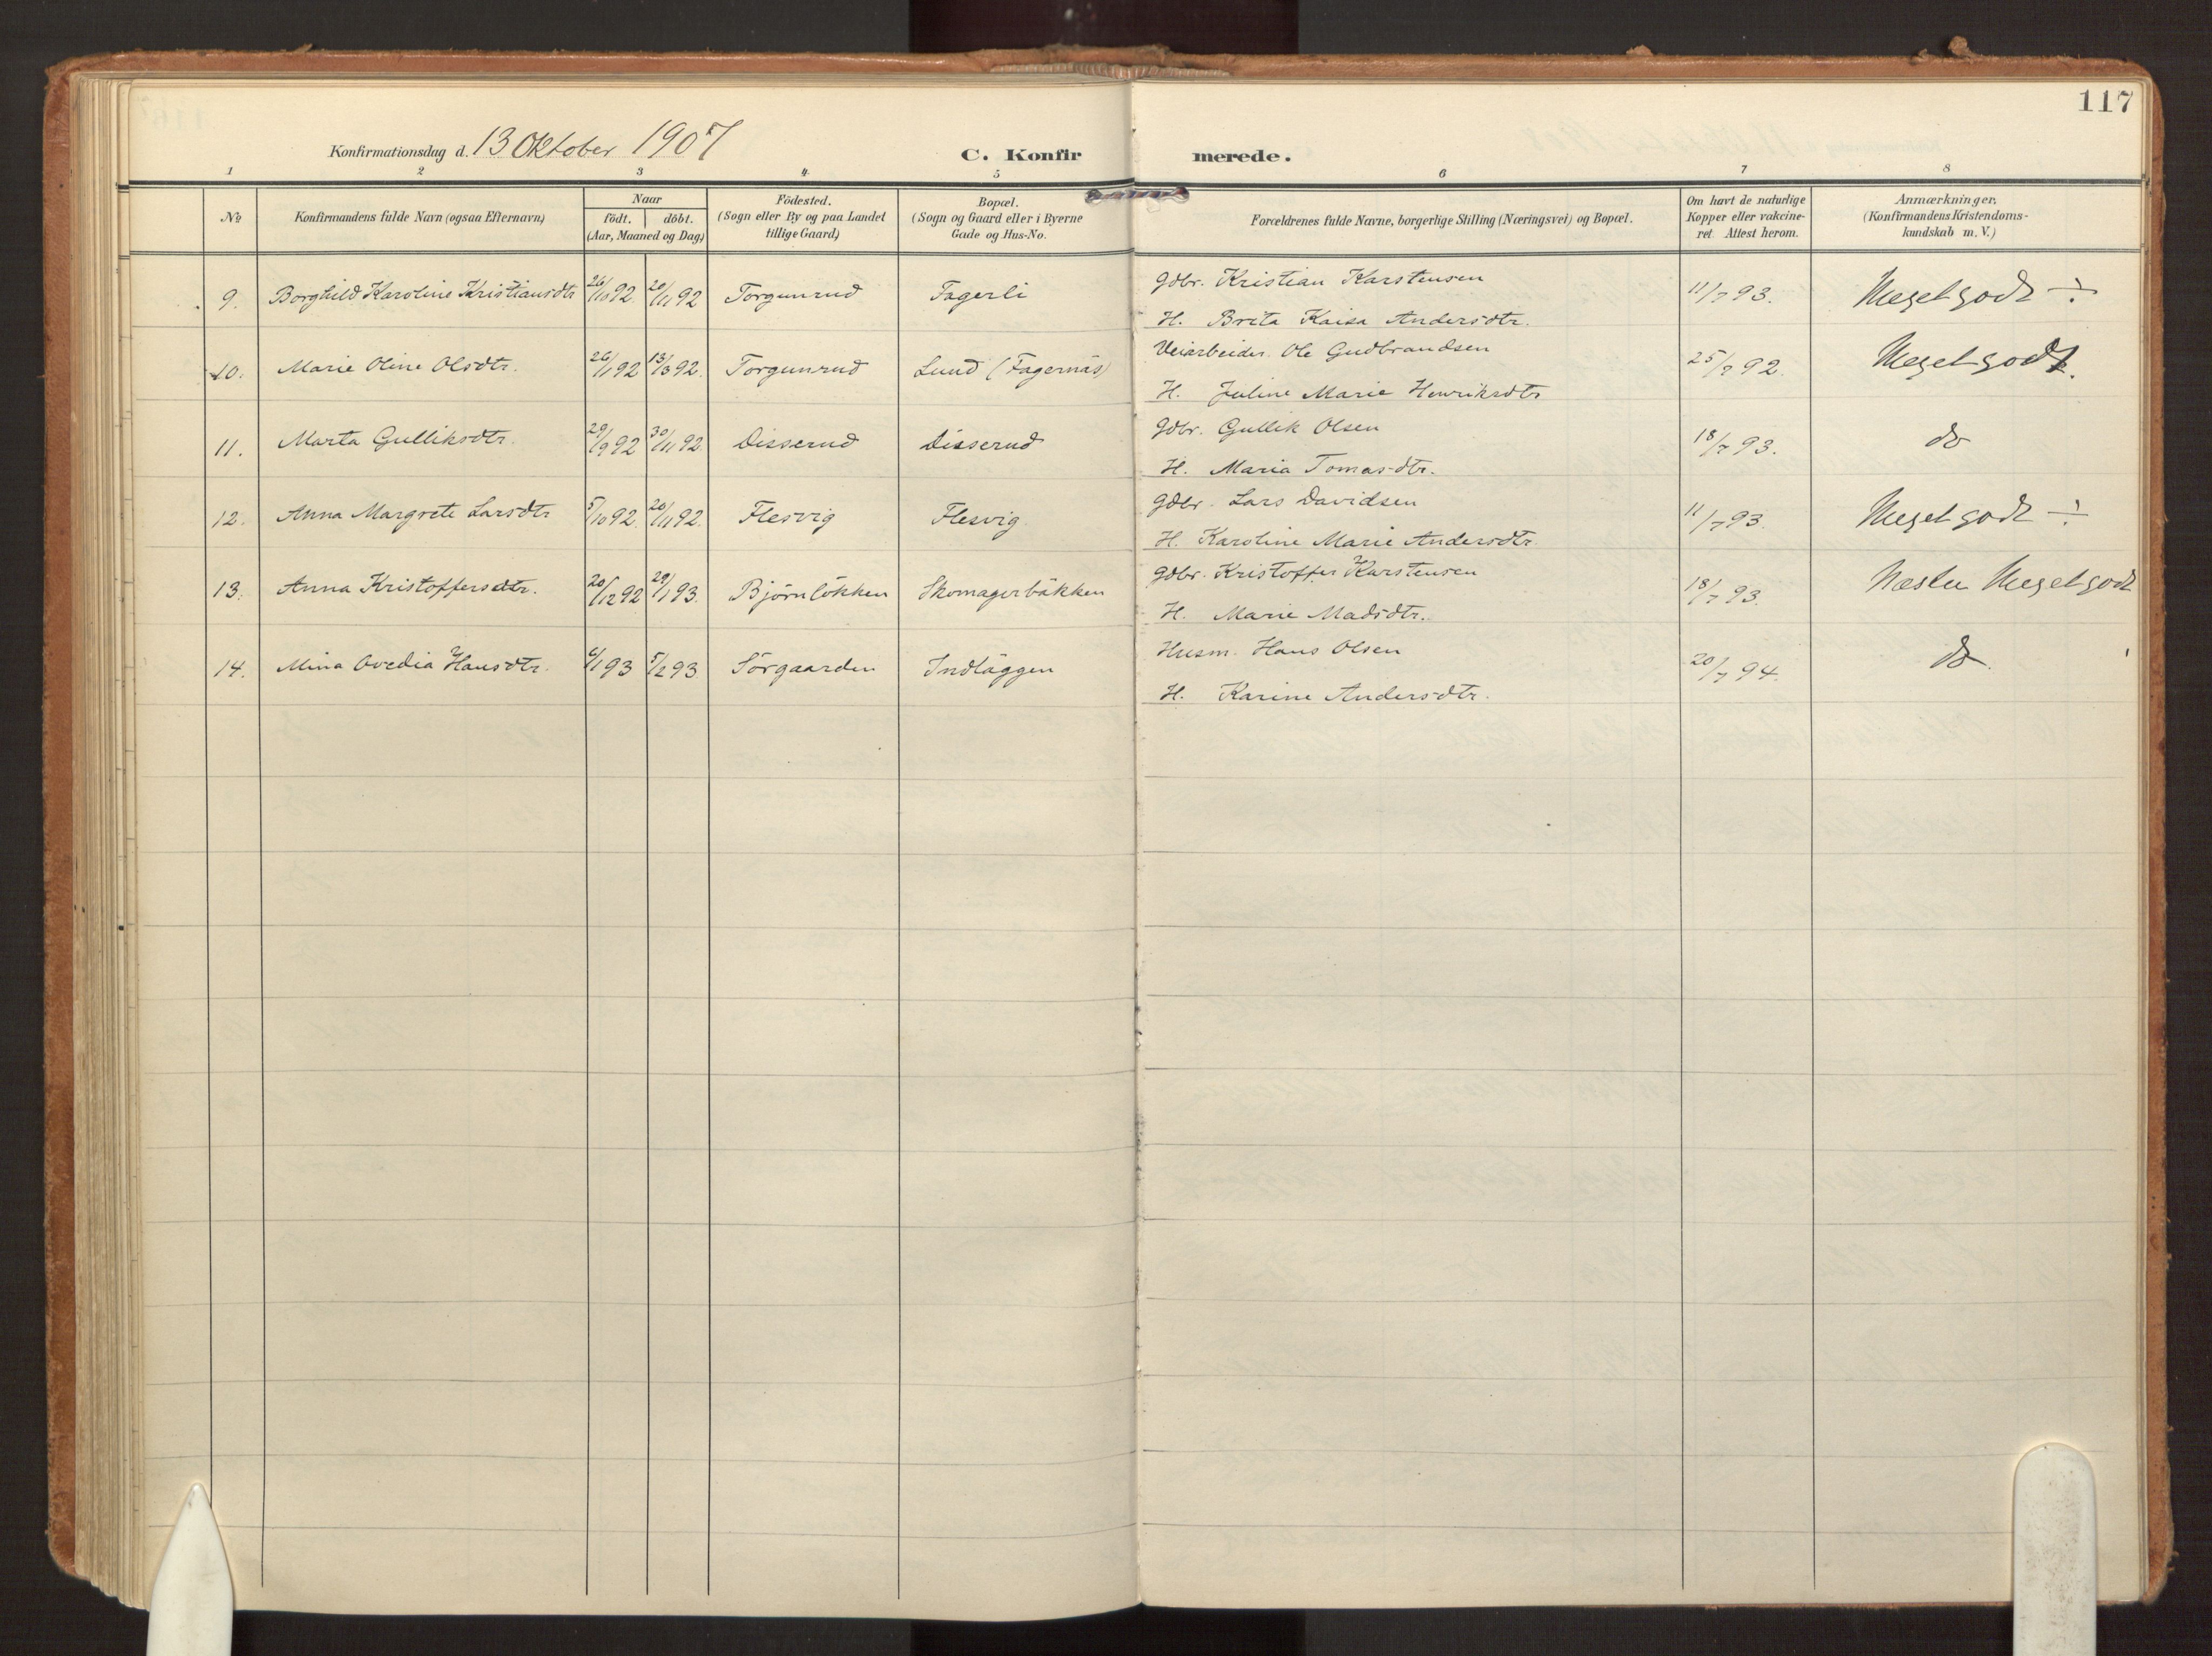 117
Konfirmationsdag d. 13 Oktober 1907
C. Konfirmerede.
1 2 3 4 5 6 7 8
No
Konfirmandens fulde Navn (ogsaa Efternavn)
Naar
födt. döbt.
(Aar, Maaned og Dag)
Födested.
(Sogn eller By og paa Landet
tillige Gaard)
Bopæl.
(Sogn og Gaard eller i Byerne
Gade og Hus-No.
Forældrenes fulde Navne, borgerlige Stilling (Næringsvei) og Bopæl.
Om havt de naturlige
Kopper eller vakcine-
ret. Attest herom.
Anmærkninger.
(Konfirmandens Kristendoms-
kundskab m. V.)
9. Borghild Karoline Kristiansdtr 26/10 92 20/11 92 Torgunrud Fagerli Gdbr. Kristian Karstensen 11/7 93. Meget godt ÷
H. Brita Kaisa Andersdtr.
10. Marie Oline Olsdtr. 26/1 92 13/3 92. Torgunrud Lund (Fagernäs) Veiarbeider Ole Gudbrandsen 25/7 92. Meget godt.
H. Juline Marie Henriksdtr
11. Marta Gulliksdtr. 29/9 92 30/11 92. Disserud Disserud Gdbr. Gullik Olsen 18/7 93. do
H. Maria Tomasdtr.
12. Anna Margrete Larsdtr 5/10 92. 20/11 92. Flesvig Flesvig Gdbr. Lars Davidsen 11/7 93. Meget godt ÷
H. Karoline Marie Andersdtr.
13. Anna Kristoffersdtr. 20/12 92 29/1 93. Björnlökken Skomagerbäkken Gdbr. Kristoffer Karstensen 18/7 93. Næsten Meget godt
H. Marie Madsdtr.
14. Mina Ovedia Hansdtr. 6/1 93 5/2 93 Sörgaarden Indläggen Husm. Hans Olsen 20/7 94. do.
H. Karine Andersdtr.